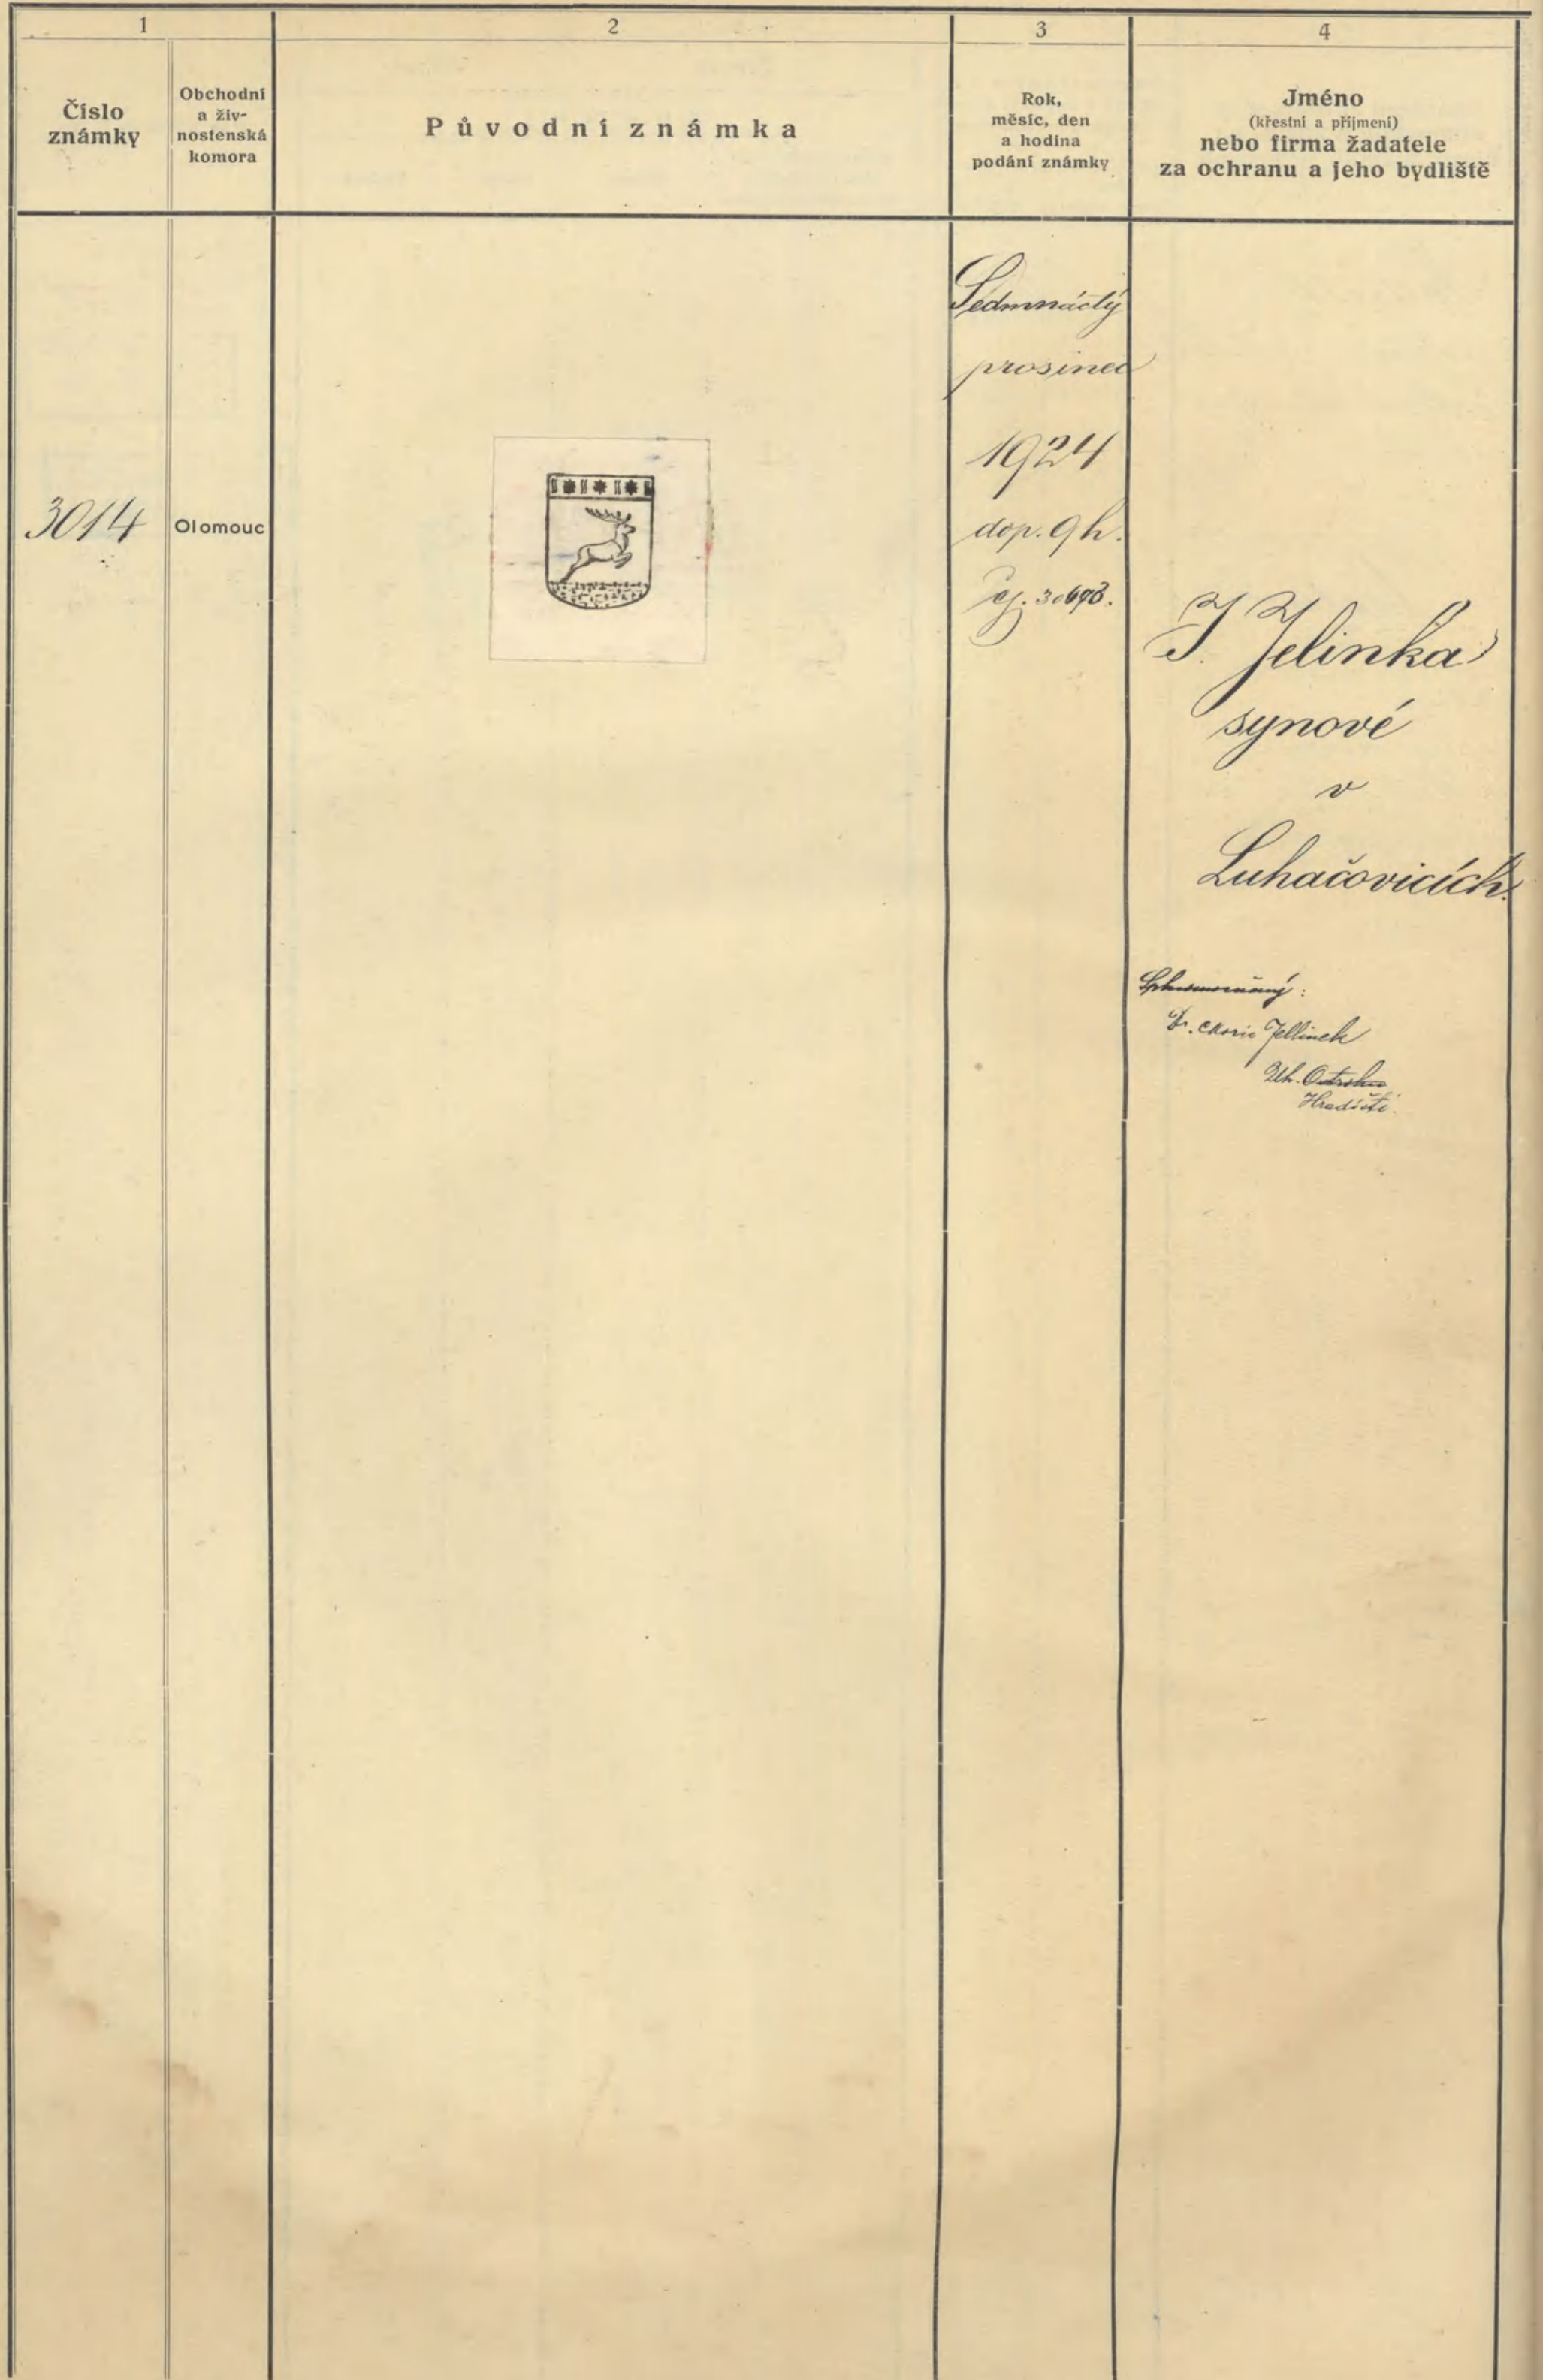 1
2
3
4
Číslo
známky
Obchodní
a živ-
nostenská
komora
Původní známka
Rok,
měsíc, den
a hodina
podání známky
Jméno
(křestní a příjmení)
nebo firma žadatele
za ochranu a jeho bydliště
3014
Olomouc
Sedmnáctý
prosinec
1924
dop. 9 h.
čj. 30693.
J. Jelinka
synové
v
Luhačovicích.
Dr. Moric Jellinek
Uh.
Hradiště.